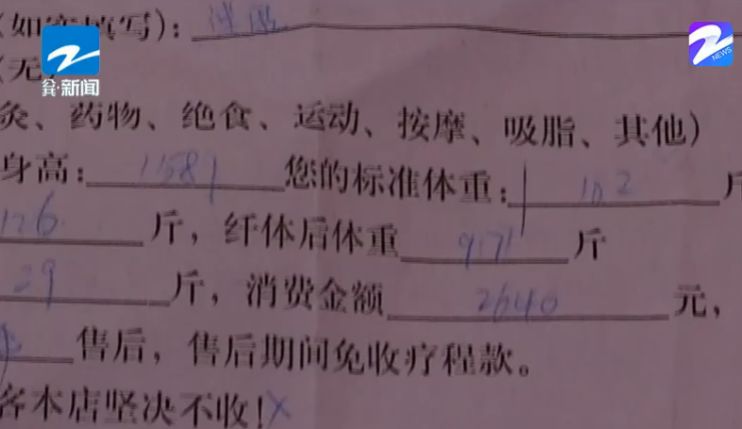 (如实填写):
NEWS
(无
新闻
灸、药物、绝食、运动、按摩、吸脂、其他)
身高: 您的标准体重: 102 斤
126 斤,纤体后体重 97 斤
29 斤,消费金额 2640 元,
售后,售后期间免收疗程款。
客本店坚决不收!X